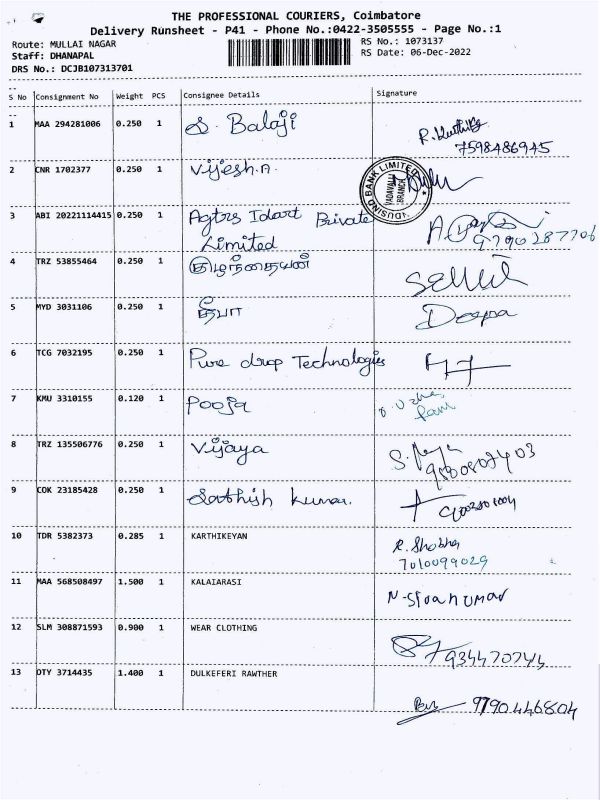 THE PROFESSIONAL COURIERS, Coimbatore
Delivery Runsheet - P41 - Phone No.:0422-3505555 - Page No.:1
Route: MULLAI NAGAR RS No.: 1073137
Staff: DHANAPAL RS Date: 06-Dec-2022
DRS No.: DCJB107313701
S No Consignment No Weight PCS Consignee Details Signature
1 MAA 294281006 0.250 1 S. Balaji
7598486945
2 CNR 1702377 0.250 1 Vijesh.A.
INDUSIND BANK LIMITED
VADAVALLI
BRANCH
3 ABI 20221114415 0.250 1 Agtrs Idart Private
Limited
9790287706
4 TRZ 53855464 0.250 1 குழந்தையன்
5 MYD 3031106 0.250 1 தீபா Deepa
6 TCG 7032195 0.250 1 Pure drop Technologies
7 KMU 3310155 0.120 1 Pooja
8 TRZ 135506776 0.250 1 Vijaya
9 COK 23185428 0.250 1 Sathish kumar.
10 TDR 5382373 0.285 1 KARTHIKEYAN R. Shobha
7010099029
11 MAA 568508497 1.500 1 KALAIARASI N-Sivakumar
12 SLM 308871593 0.900 1 WEAR CLOTHING
934470744
13 OTY 3714435 1.400 1 DULKEFERI RAWTHER
9790446804